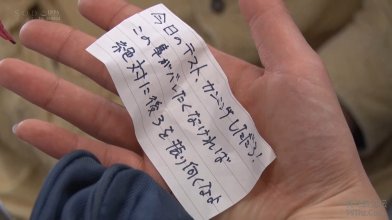 今日のテスト、カンニングしてただろ!
この事がバレたくなければ
絶対に後ろを振り向くなよ